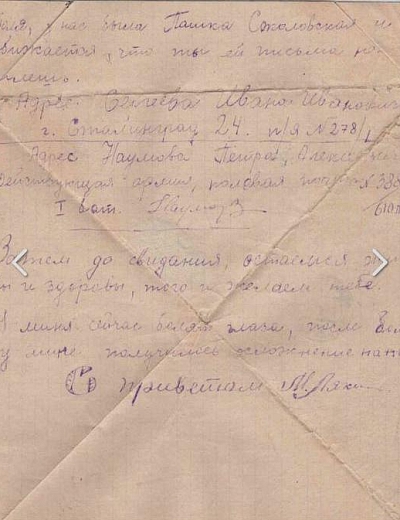 была Пашка Соколовская и
что ты ей письма не
Адрес Сергеева Ивана Ивановича
г. Сталинград 24. п/я №278/1
Адрес Наумова Петра, Алексе
Действующая армия, полевая по
I бат. Наумов
Затем до свидания, остаемся
и здоровы, того и желаем тебе.
меня сейчас болят глаза, после
у мине получилось осложнение на
С приветом М. Ляк